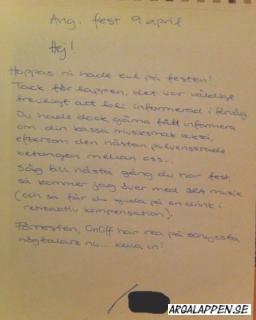 Ang. fest 9 april
Hej!
Hoppas ni hade kul på festen!
Tack för lappen, det var väldigt
trevligt att bli informerad i förväg.
Du hade dock gärna fått informera
om din kassa musiksmak också,
eftersom den nästan pulveriserade
betongen mellan oss...
Säg till nästa gång du har fest
så kommer jag över med musik
(och så får du bjuda på en drink i
retroaktiv kompensation)
Förresten, OnOff har rea på
högtalare nu... kolla in!
ARGALAPPEN.SE